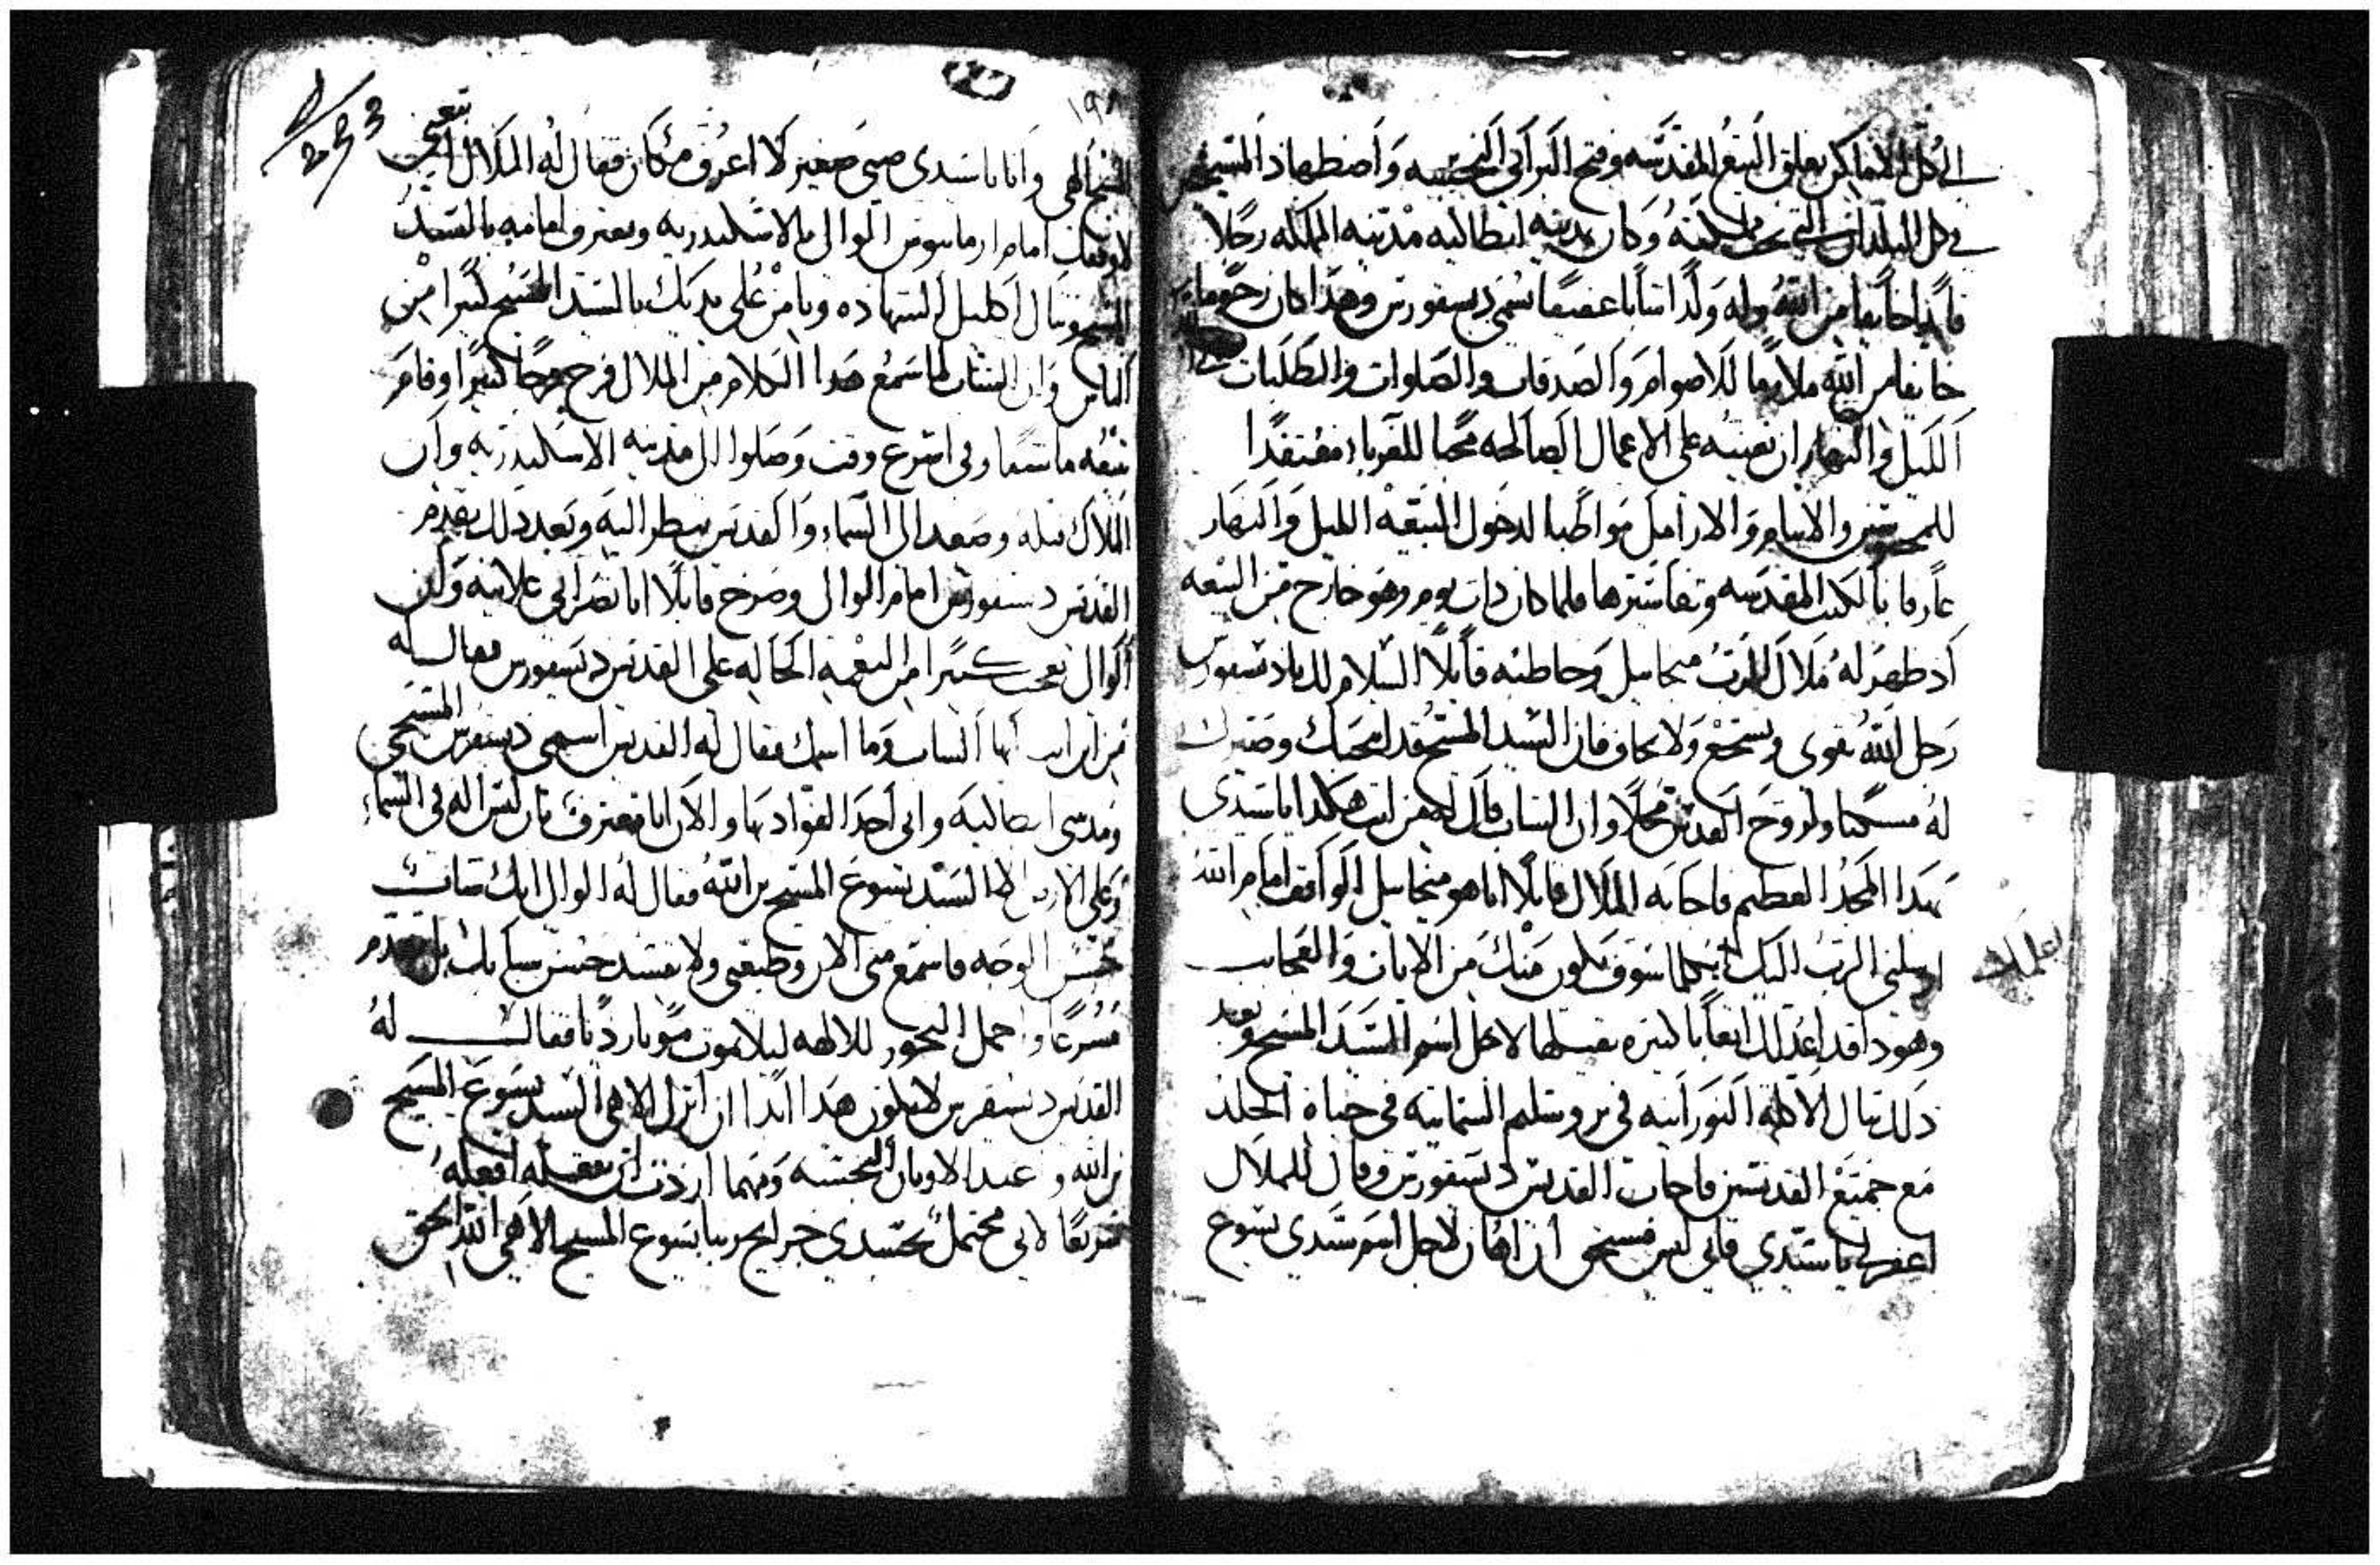 الى كل الاماكن بغلق البيع المقدسه وفتح البرابي النجسه واضطهاد المسيحيين
في كل البلدان التي تحت سلطنته وكان بمدينه انطاكيه مدينه المملكه رجلا
خايفا من الله وله ولدا شابا عفيفا يسمى ديسفورس وهذا كان رحوما
خايفا من الله ملازما للاصوام والصدقات والصلوات والطلبات
الليل والنهار ان تعينه على الاعمال الصالحه محبا للغرباء مفتقدا
للمحبوسين والايتام والارامل مواظبا لدخول البيعه الليل والنهار
عارفا بالكتب المقدسه وتفاسيرها فلما كان ذات يوم وهو خارج من البيعه
اذ ظهر له ملاك الرب ميخاييل وخاطبه قايلا السلام لك ياديسفورس
رجل الله تقوى وتشجع ولا تخاف فان السيد المسيح قد احبك وصيرك
له مسكنا ولروح القدس محلا وان الشاب قال له من انت هكذا ياسيدي
بهذا المجد العظيم فاجابه الملاك قايلا انا هو ميخاييل الواقف امام الله
ارسلني الرب اليك لاعلمك بما سوف يكون منك من الايات والعجايب
وهوذا قد اعد لك اتعابا كثيره تقبلها لاجل اسم السيد المسيح وبعد
ذلك تنال الاكله النورانيه في يروشليم السمايه في حياة الخلد
مع جميع القديسين فاجاب القديس ديسفورس وقال للملاك
اغفر لي ياسيدي فاني ليس مستحق ان اهان لاجل اسم سيدي يسوع
١٩٨
المسيح الهي وانا ياسيدي صبي صغير لا اعرف مكان فقال له الملاك اتبعني
لاوقفك امام ارمانيوس الوالي بالاسكندريه وتعترف امامه بالسيد
المسيح وتنال اكليل الشهاده ويامن على يديك بالسيد المسيح كثيرا من
الناس وان الشاب لما سمع هذا الكلام من الملاك فرح فرحا كثيرا وقام
تبعه ماشيا وفي اسرع وقت وصلوا الى مدينه الاسكندريه وان
الملاك قبله وصعد الى السماء والقديس ينظر اليه وبعد ذلك تقدم
القديس ديسفورس امام الوالي وصرخ قايلا انا نصراني علانيه وان
الوالي تعجب كثيرا من النعمه الحاله على القديس ديسفورس فقال له
من اين انت ايها الشاب وما اسمك فقال له القديس اسمي ديسفرس المسيحي
ومدينتي انطاكيه وابي احد القواد بها والان انا معترف بان ليس اله في السماء
وعلى الارض الا السيد يسوع المسيح بن الله فقال له الوالي انك شاب
حسن الوجه فاسمع مني الان وطيعني ولا تفسد حسن شبابك بل تقدم
مسرعا واحمل البخور للالهه ليلا تموت موتا رديا فقال له
القديس ديسفرس لا يكون هذا ابدا ان اترك الاهي السيد يسوع المسيح
بن الله و اعبد الاوثان النجسه ومهما اردت ان تفعله افعله
سريعا لاني محتمل بجسدي جراح ربنا يسوع المسيح الاهي الله الحق